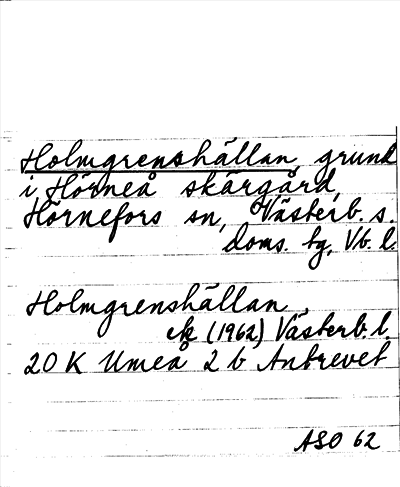 Holmgrenshällan, grund
i Hörneå skärgård,
Hörnefors sn, Västerb. s.
doms. tg, Vb. l.
Holmgrenshällan,
ek (1962) Västerb. l.
20 K Umeå 2 b Antrevet
ASO 62